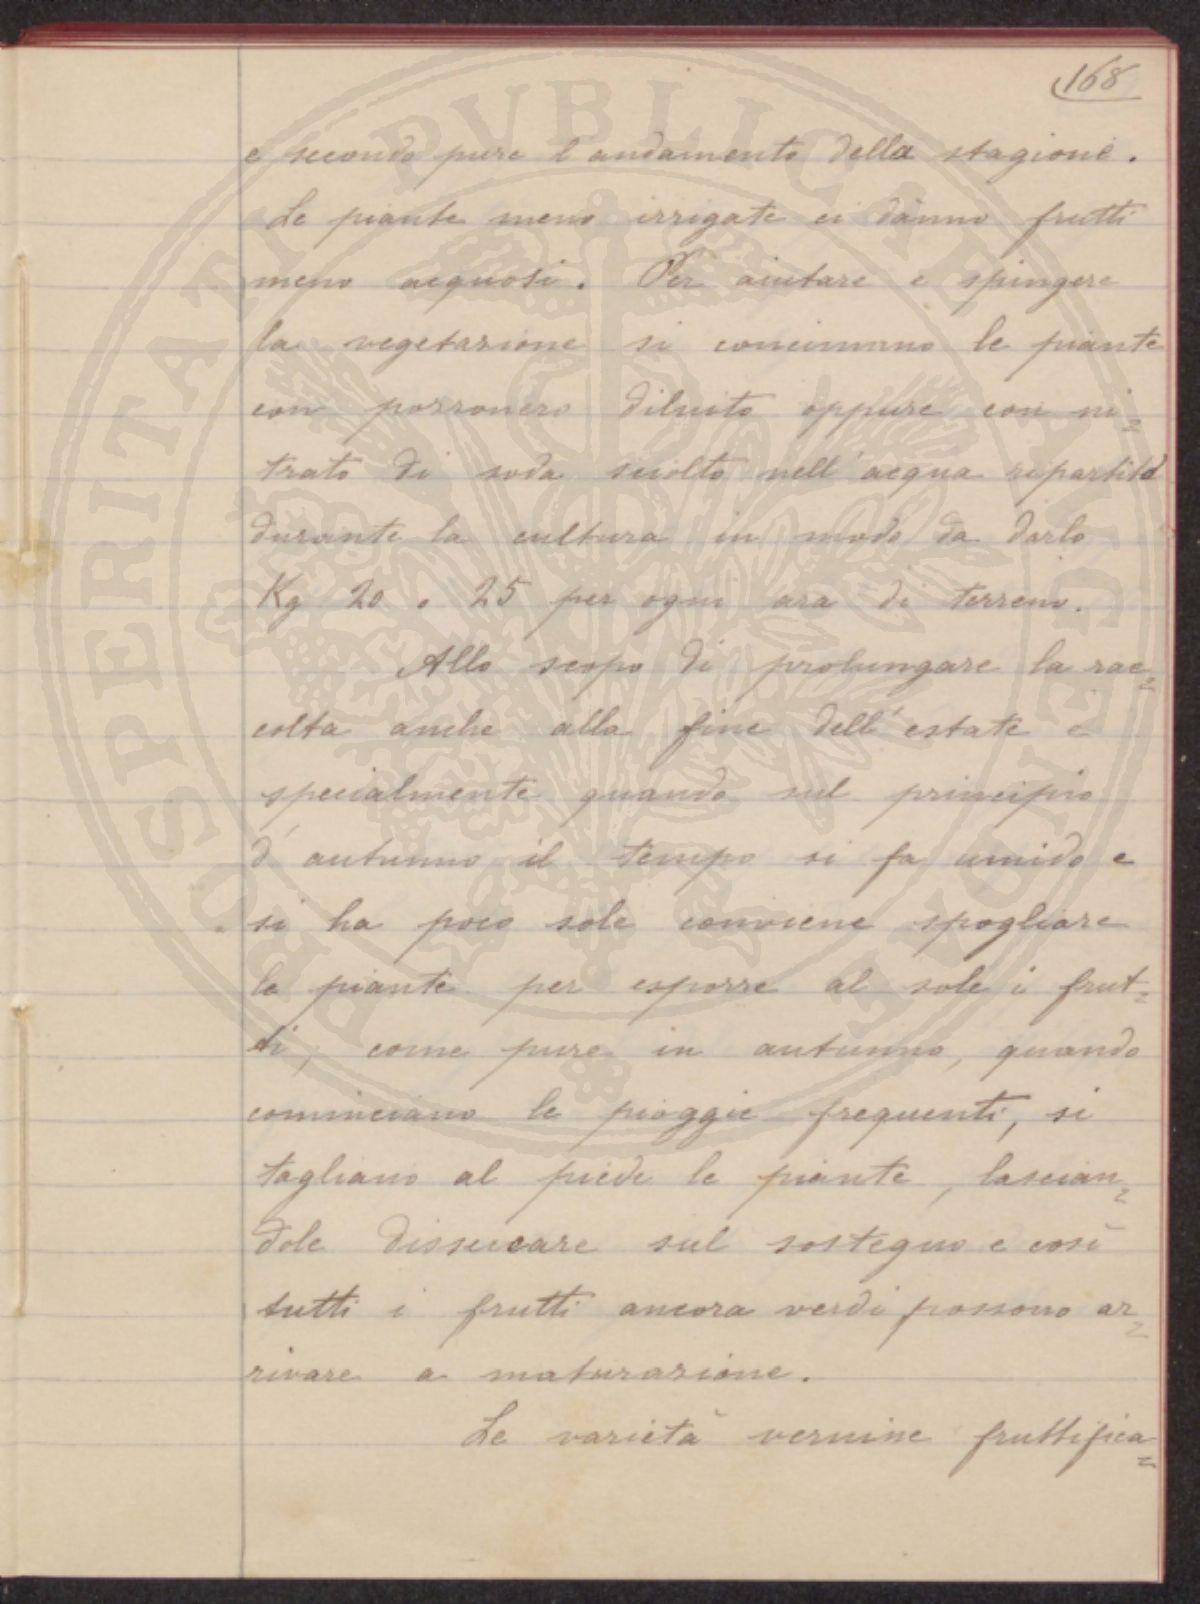 168
e secondo pure l'andamento della stagione.
Le piante meno irrigate ci dànno frutti
meno acquosi. Per aiutare e spingere
la vegetazione si concimano le piante
con pozzonero diluito oppure con ni=
trato di soda sciolto nell'acqua ripartito
durante la cultura in modo da darlo
Kg 20 o 25 per ogni ara di terreno.
Allo scopo di prolungare la rac=
colta anche alla fine dell'estate e
specialmente quando sul principio
d'autunno il tempo si fa umido e
si ha poco sole conviene spogliare
le piante per esporre al sole i frut=
ti, come pure in autunno, quando
cominciano le pioggie frequenti, si
tagliano al piede le piante, lascian=
dole disseccare sul sostegno e così
tutti i frutti ancora verdi possono ar=
rivare a maturazione.
Le varietà vernine fruttifica=
PROSPERITATI PVBLICAE AVGENDAE